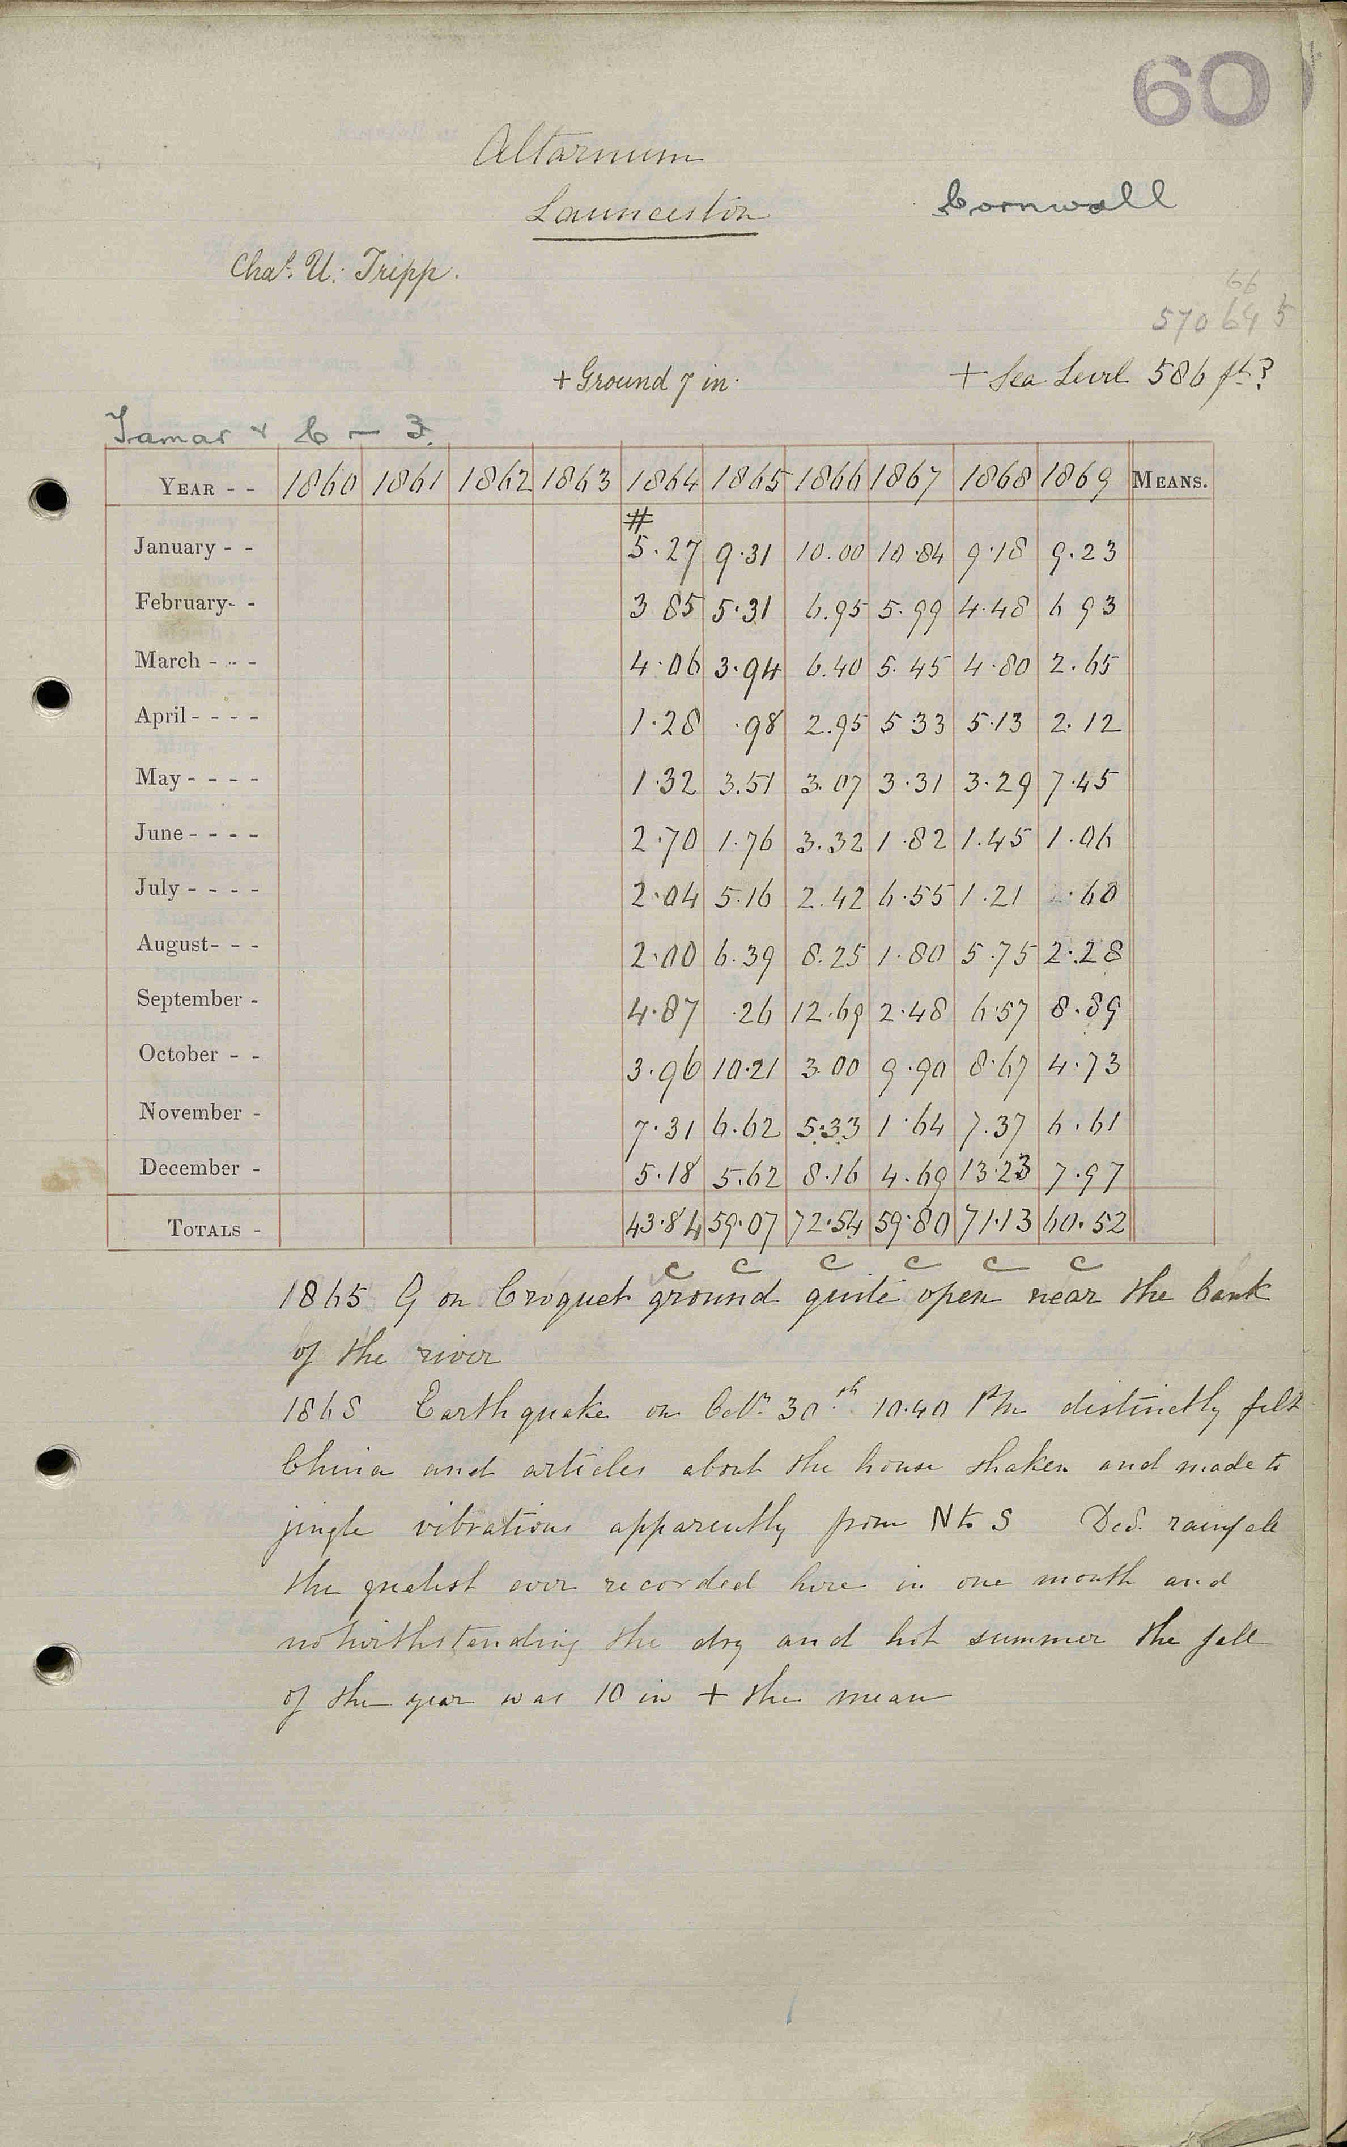 60
Altarnum
Launceston
Cornwall
Chas. U. Tripp.
66
570 64 5
+ Ground 7 in.
+ Sea Level 586 ft?
Tamar & C — 3.
YEAR - - 1860 1861 1862 1863 1864 1865 1866 1867 1868 1869 MEANS.
#
January - - 5.27 9.31 10.00 10.84 9.18 9.23
February- - 3 85 5.31 6.95 5.99 4.48 6 93
March - - - 4.06 3.94 6.40 5.45 4.80 2.65
April - - - - 1.28 .98 2.95 5 33 5.13 2.12
May - - - - 1.32 3.51 3.07 3.31 3.29 7.45
June - - - - 2.70 1.76 3.32 1.82 1.45 1.06
July - - - - 2.04 5.16 2.42 6.55 1.21 .60
August- - - 2.00 6.39 8.25 1.80 5.75 2.28
September - 4.87 .26 12.69 2.48 6.57 8.89
October - - 3.96 10.21 3.00 9.90 8.67 4.73
November - 7.31 6.62 5.33 1.64 7.37 6.61
December - 5.18 5.62 8.16 4.69 13.23 7.97
TOTALS - 43.84 59.07 72.54 59.80 71.13 60.52
c c c c c c
1865 G on Croquet ground quite open near the bank
of the river
1868 Earthquake on Octr. 30th 10.40 PM distinctly felt
China and articles about the house shaken and made to
jingle vibrations apparently from N to S Dec. rainfall
the greatest ever recorded here in one month and
notwithstanding the dry and hot summer the fall
of the year was 10 in + the mean